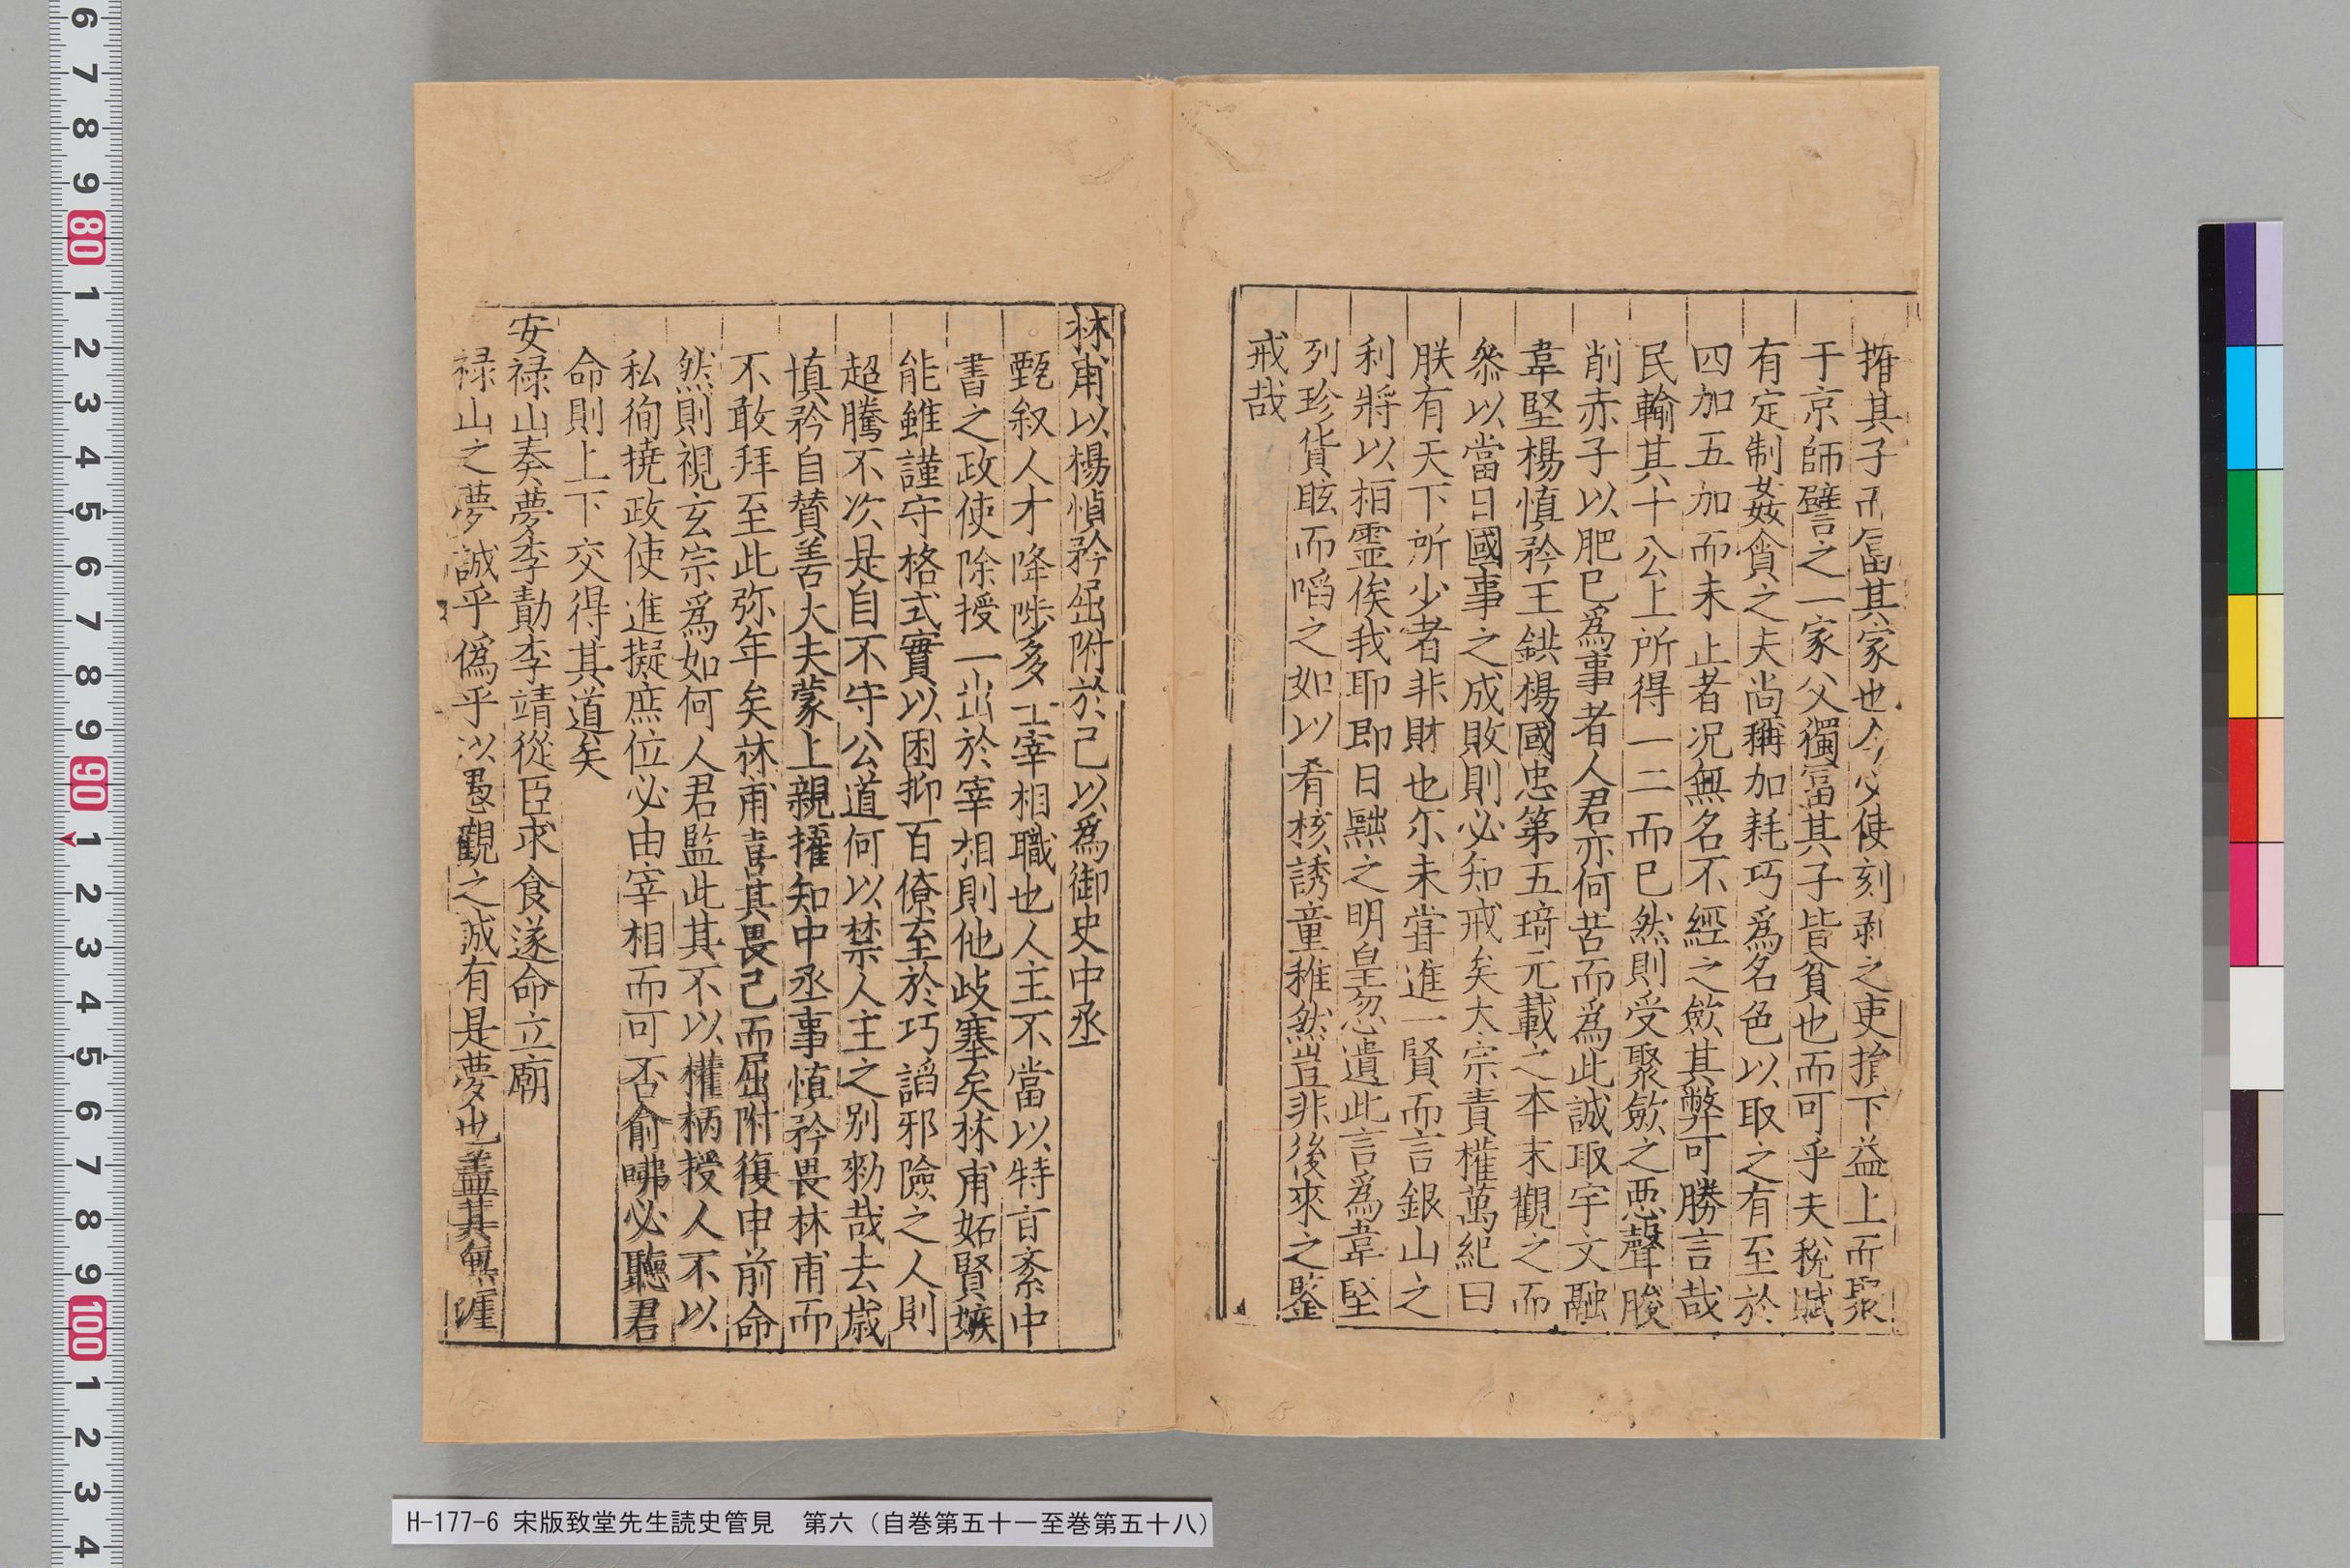 搉其子而富其家也今必使刻剥之吏損下益上而聚
于京師譬之一家父獨富其子皆貧也而可乎夫稅賦
有定制姦貪之夫尚稱加耗巧爲名色以取之有至於
四加五加而未止者况無名不經之斂其弊可勝言哉
民輸其十公上所得一二而巳然則受聚斂之惡聲朘
削赤子以肥巳爲事者人君亦何苦而爲此誠取宇文融
韋堅楊慎矜王鉷楊國忠第五琦元載之本末觀之而
叅以當日國事之成敗則必知戒矣太宗責權萬紀曰
朕有天下所少者非財也尓未甞進一賢而言銀山之
利將以桓靈俟我耶即日黜之明皇忽遺此言爲韋堅
列珍貨眩而啗之如以肴核誘童稚然豈非後來之鑒
戒哉
林甫以楊慎矜屈附於己以爲御史中丞
甄叙人才降陟多士宰相職也人主不當以特㫖紊中
書之政使除授一出於宰相則他歧塞矣林甫妬賢嫉
能雖謹守格式實以困抑百僚至於巧謟邪險之人則
超騰不次是自不守公道何以禁人主之别勑哉去歲
慎矜自賛善大夫蒙上親擢知中丞事慎矜畏林甫而
不敢拜至此弥年矣林甫喜其畏己而屈附復申前命
然則視玄宗爲如何人君監此其不以權柄授人不以
私徇撓政使進擬庶位必由宰相而可否俞咈必聽君
命則上下交得其道矣
安禄山奏夢李勣李靖從臣求食遂命立廟
禄山之夢誠乎僞乎以愚觀之誠有是夢也葢其無涯
H-177-6 宋版致堂先生読史管見 第六（自巻第五十一至巻第五十八）
6 7 8 9 80 1 2 3 4 5 6 7 8 9 90 1 2 3 4 5 6 7 8 9 100 1 2 3 4